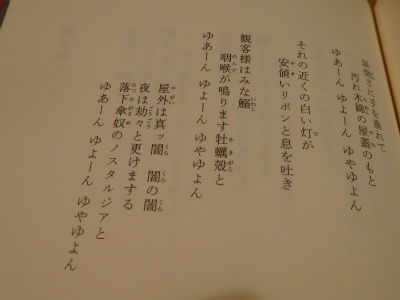 頭倒さに手を垂れて
汚れ木綿の屋蓋のもと
ゆあーん ゆよーん ゆやゆよん
それの近くの白い灯が
安値いリボンと息を吐き
観客様はみな鰯
咽喉が鳴ります牡蠣殻と
ゆあーん ゆよーん ゆやゆよん
屋外は真ッ闇 闇の闇
夜は劫々と更けまする
落下傘奴のノスタルジアと
ゆあーん ゆよーん ゆやゆよん